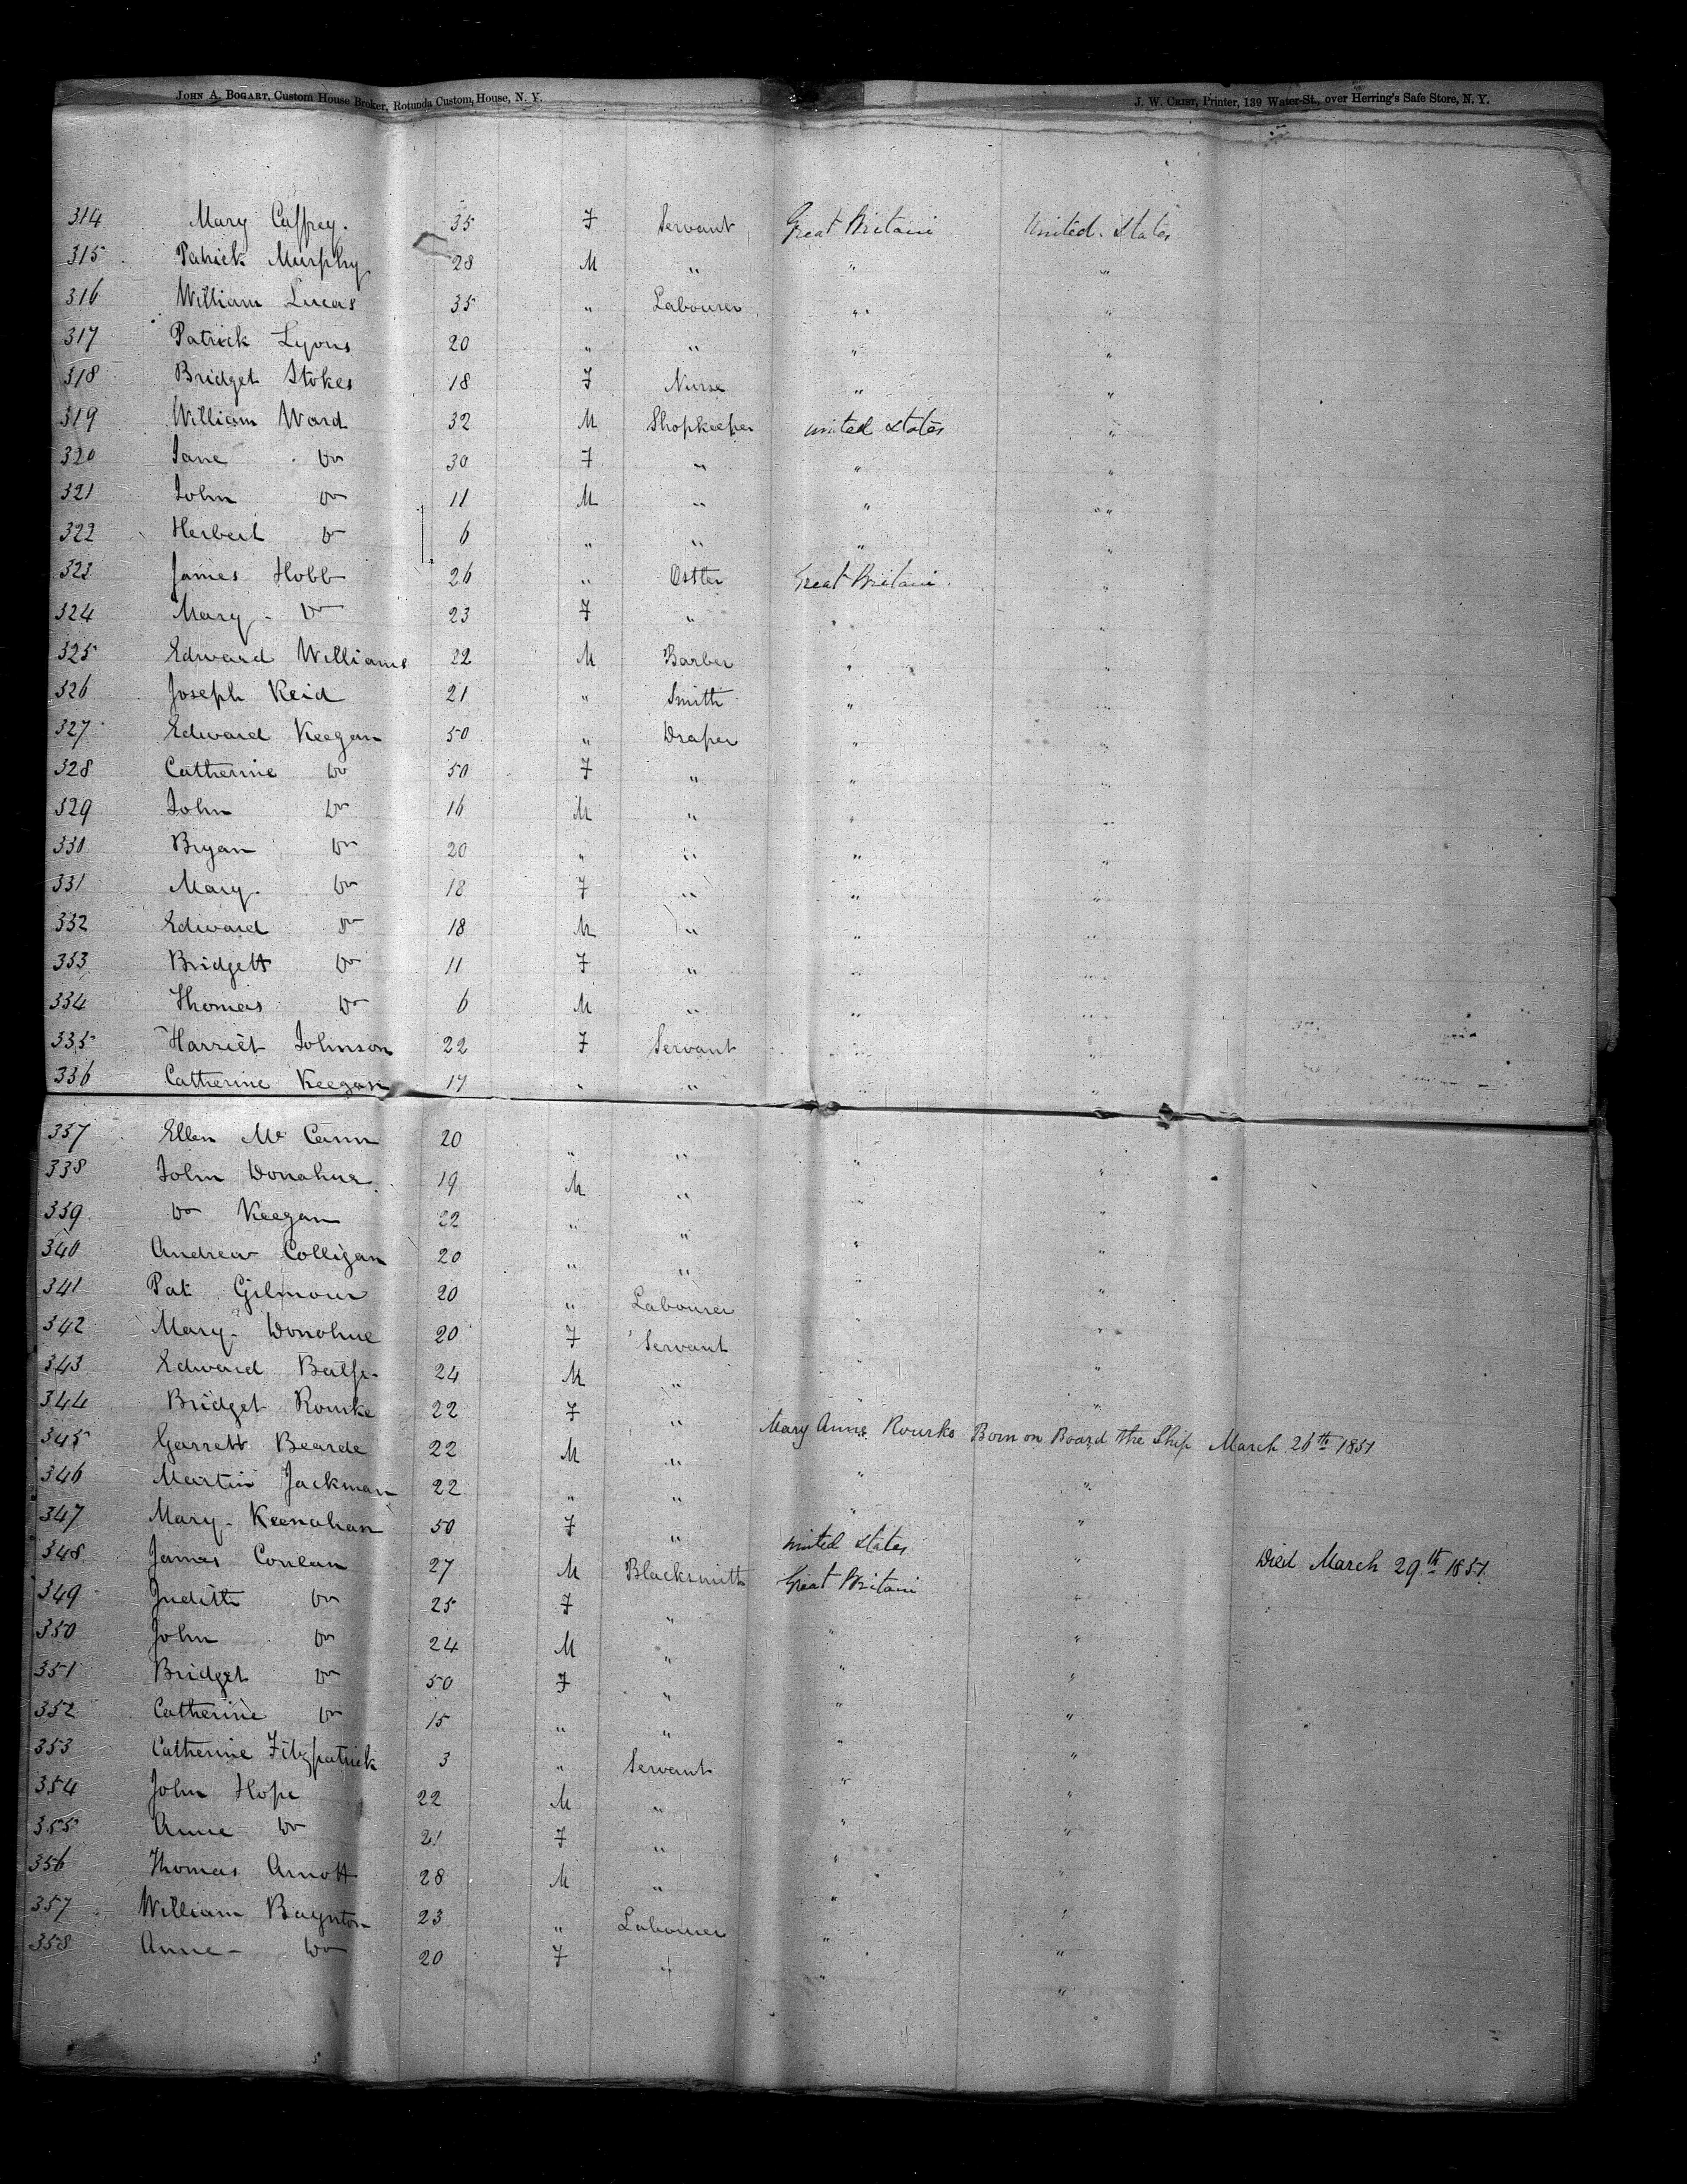 JOHN A. BOGART, Custom House Broker, Rotunda Custom House, N. Y.
J. W. CRIST, Printer, 139 Water-St., over Herring's Safe Store, N. Y.
314 Mary Caffrey. 35 F Servant Great Britain United States
315 Patrick Murphy 28 M " " "
316 William Lucas 35 " Labourer " "
317 Patrick Lyons 20 " " " "
318 Bridget Stokes 18 F Nurse " "
319 William Ward 32 M Shopkeeper United States "
320 Jane Do 30 F " " "
321 John Do 11 M " " "
322 Herbert Do 6 " " " "
323 James Hobb 26 " Ostler Great Britain "
324 Mary Do 23 F " " "
325 Edward Williams 22 M Barber " "
326 Joseph Reid 21 " Smith " "
327 Edward Keegan 50 " Draper " "
328 Catherine Do 50 F " " "
329 John Do 16 M " " "
330 Bryan Do 20 " " " "
331 Mary Do 18 F " " "
332 Edward Do 18 M " " "
333 Bridgett Do 11 F " " "
334 Thomas Do 6 M " " "
335 Harriet Johnson 22 F Servant " "
336 Catherine Keegan 17 " " " "
337 Ellen Mc Cann 20 " " " "
338 John Donahue 19 M " " "
339 Do Keegan 22 " " " "
340 Andrew Colligan 20 " " " "
341 Pat Gilmour 20 " Labourer " "
342 Mary Donohue 20 F Servant " "
343 Edward Balfe 24 M " " "
344 Bridget Rourke 22 F " Mary Anne Rourke Born on Board the Ship March 26th 1851
345 Garrett Bearde 22 M " " "
346 Martin Jackman 22 " " " "
347 Mary Keenahan 50 F " United States "
348 James Conlan 27 M Blacksmith Great Britain " Died March 29th 1851
349 Judith Do 25 F " " "
350 John Do 24 M " " "
351 Bridget Do 50 F " " "
352 Catherine Do 15 " " " "
353 Catherine Fitzpatrick 3 " Servant " "
354 John Hope 22 M " " "
355 Anne Do 21 F " " "
356 Thomas Arnott 28 M " " "
357 William Baynton 23 " Labourer " "
358 Anne Do 20 F " " "